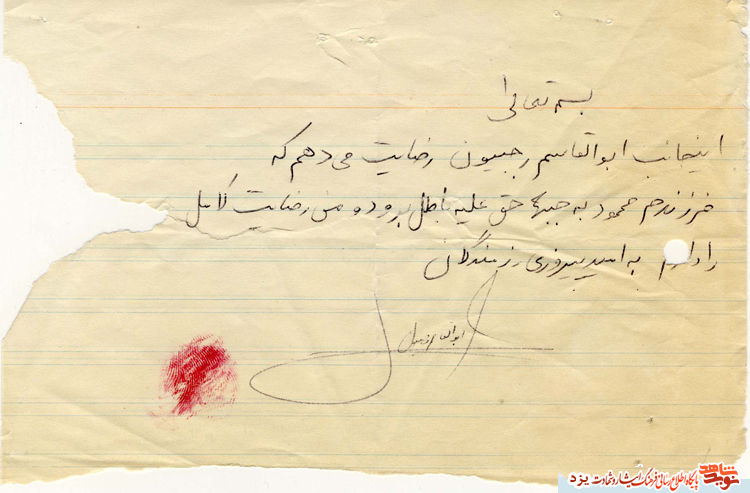 بسمه تعالی
اینجانب ابوالقاسم رجبیون رضایت می دهم که
فرزندم محمود به جبهه حق علیه باطل برود و من رضایت کامل
را دارم به امید پیروزی رزمندگان
ابوالقاسم رجبیون
نوید شاهد پایگاه اطلاع رسانی فرهنگ ایثار و شهادت یزد